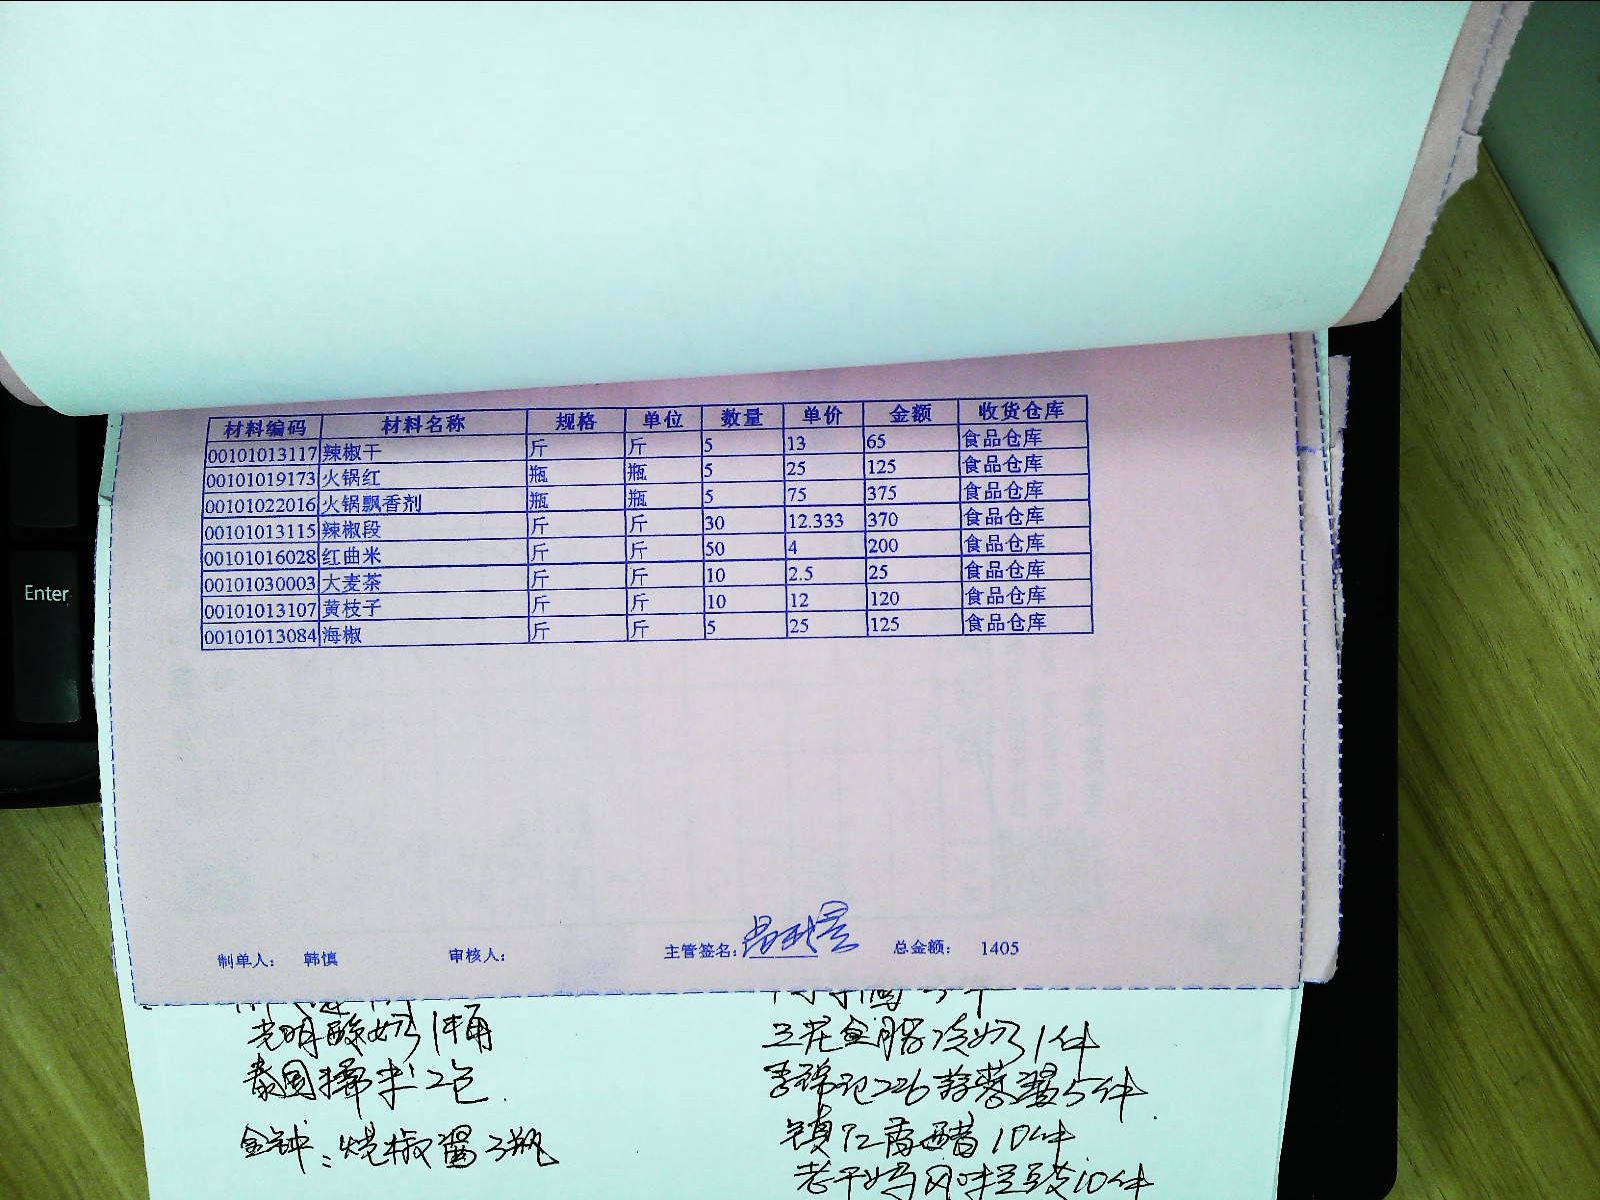 材料编码 材料名称 规格 单位 数量 单价 金额 收货仓库
00101013117 辣椒干 斤 斤 5 13 65 食品仓库
00101019173 火锅红 瓶 瓶 5 25 125 食品仓库
00101022016 火锅飘香剂 瓶 瓶 5 75 375 食品仓库
00101013115 辣椒段 斤 斤 30 12.333 370 食品仓库
00101016028 红曲米 斤 斤 50 4 200 食品仓库
00101030003 大麦茶 斤 斤 10 2.5 25 食品仓库
00101013107 黄枝子 斤 斤 10 12 120 食品仓库
00101013084 海椒 斤 斤 5 25 125 食品仓库
制单人: 韩慎 审核人: 主管签名: 总金额: 1405
光明酸奶1桶
泰国糯米2包
金钟:烧椒酱3瓶
三花全脂淡奶1件
李锦记226蒜蓉酱5件
镇江香醋10件
老干妈风味豆豉10件
Enter